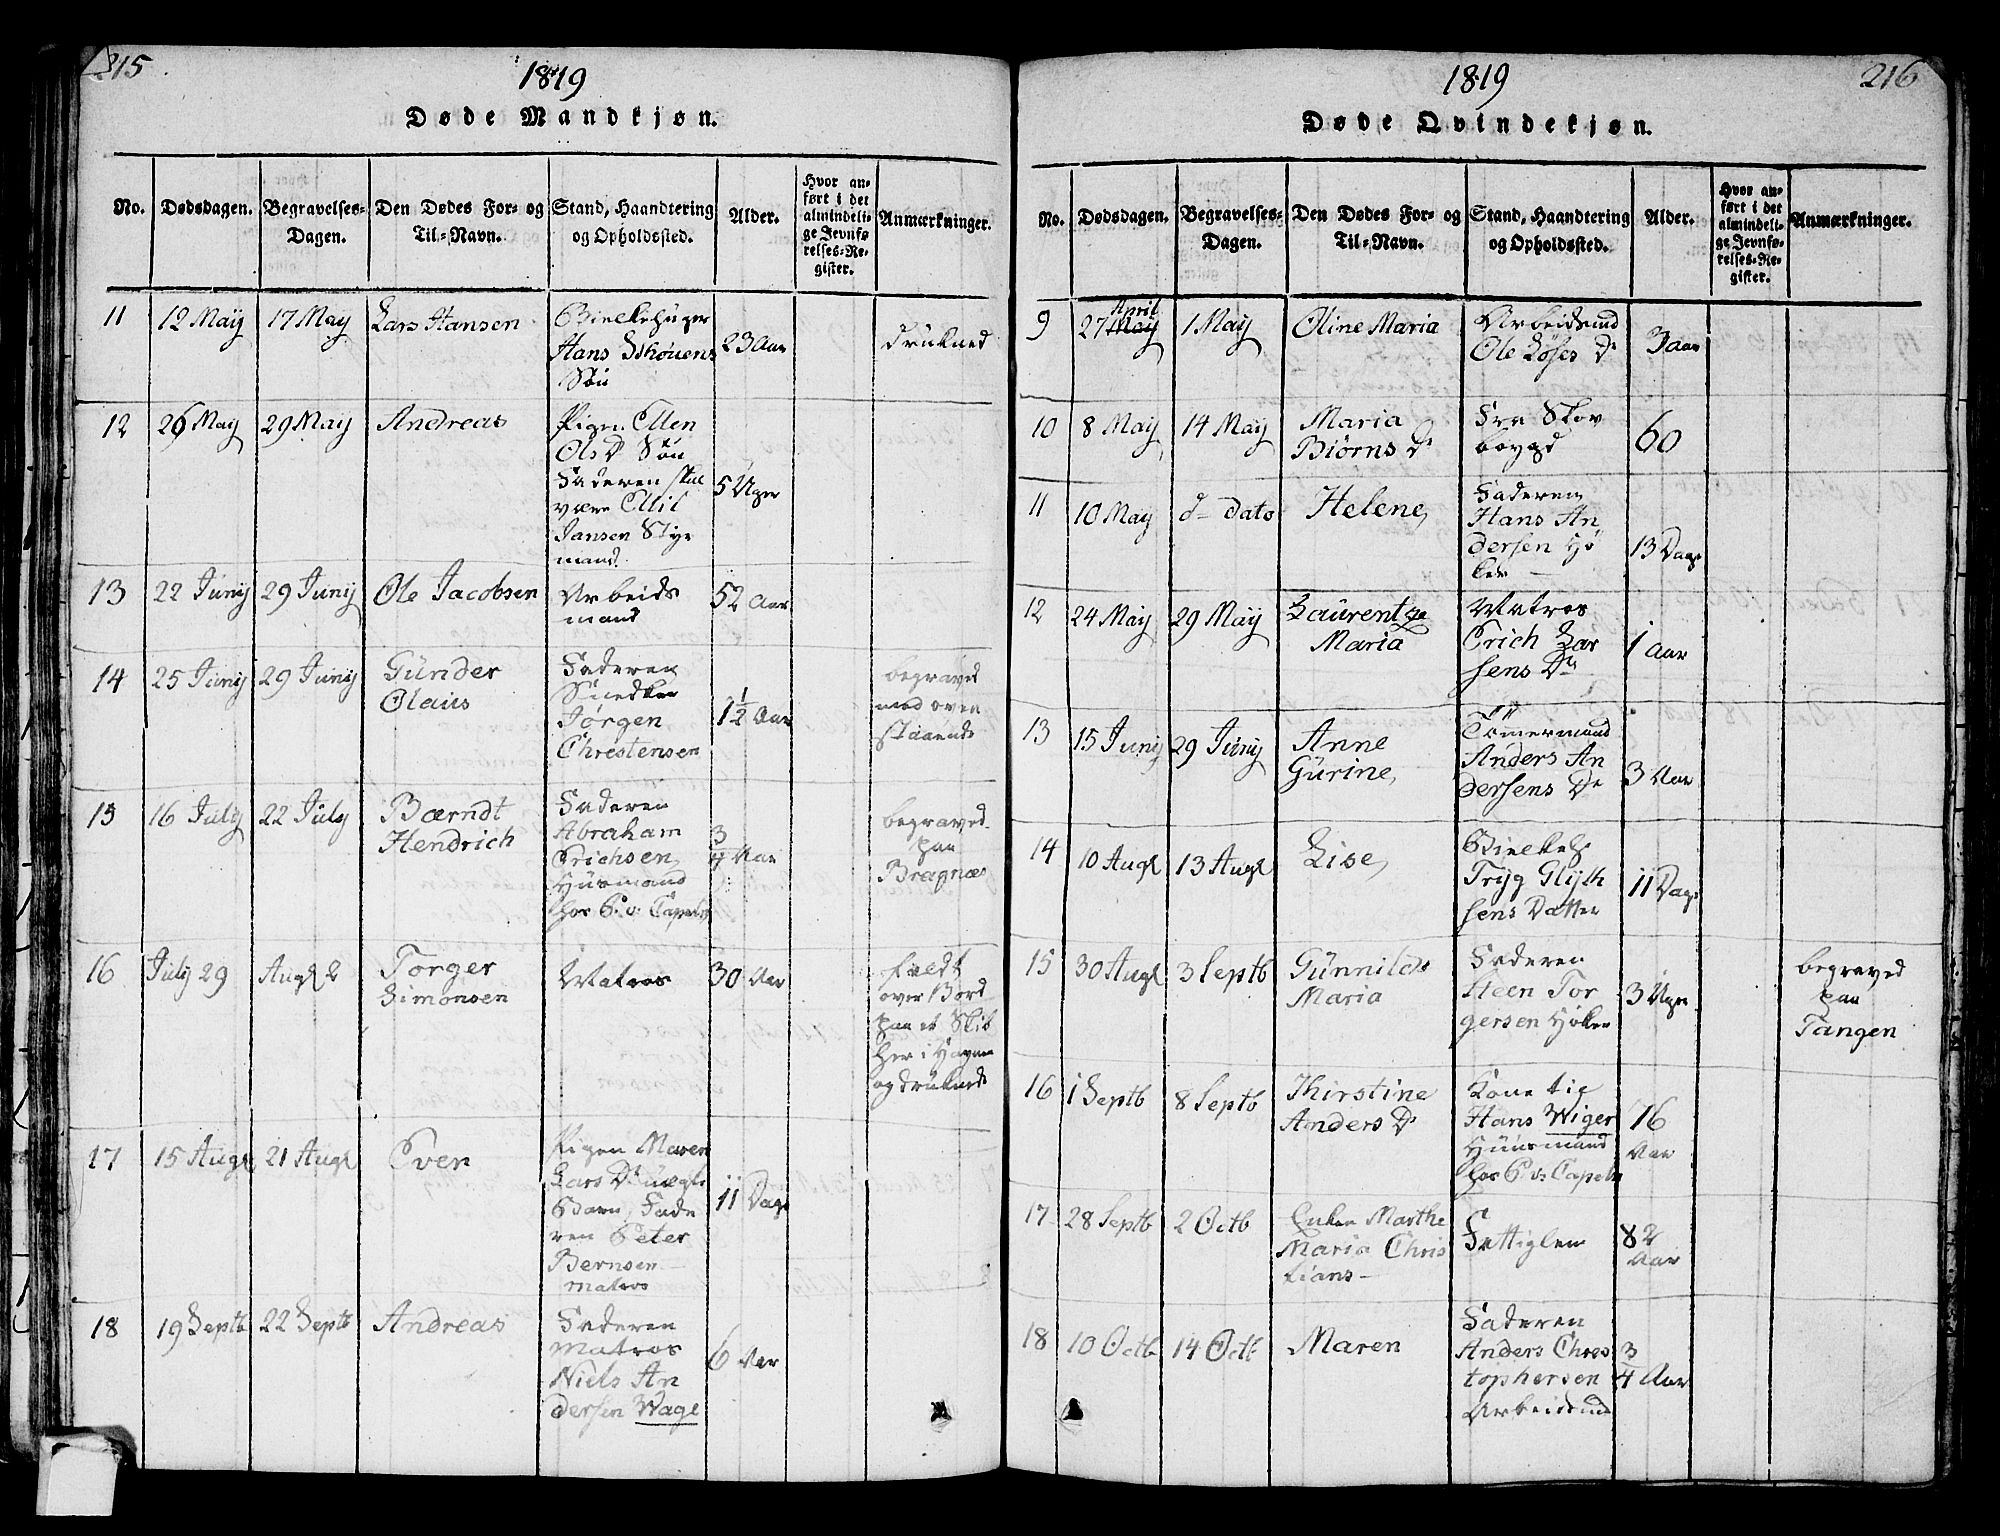 215
1819
Døde Mandkjøn.
No.
Dødsdagen.
Begravelses-
Dagen.
Den Dødes For- og
Til-Navn.
Stand, Haandtering
og Opholdssted.
Alder.
Hvor an-
ført i det
almindeli-
ge Jevnfø
relses-Re-
gister.
Anmærkninger.
11
12 May
17 May
Lars Hansen
Hans Schouens
Søn
23 Aar
drukned
12
26 May
29 May
Andreas
Pigen Ellen
Ols D Søn
Faderen skal
være
Jansen Styr
mand
5 Uger
13
22 Juny
29 Juny
Ole Jacobsen
Arbeids
mand
52 Aar
14
25 Juny
29 Juny
Günder
Olaus
Faderen
Snedker
Jørgen
Chrestensen
1½ Aar
begraved
med oven
staaende
15
16 July
22 July
Bærndt
Hendrich
Faderen
Abraham
Erichsen
Husmand
hos P. v. Capeln
¾ Aar
begraved
paa
Bragnæs
16
July 29
Aug 2
Torger
Simonsen
Matros
30 Aar
faldt
over Bord
paa et Skib
her i Havnen
og druknede
17
15 Aug
21 Aug
Even
Pigen Maren
Lars D uægte
Barn, Fade
ren Peter
Bernsen
matros
11 Dage
18
19 Septb
22 Septb
Andreas
Faderen
Matros
Niels An
dersen Wage
6 Aar
216
1819
Døde Qvindekjøn.
No.
Dødsdagen.
Begravelses-
Dagen.
Den Dødes For- og
Til-Navn.
Stand, Haandtering
og Opholdssted.
Alder.
Hvor an-
ført i det
almindeli-
ge Jevnfø-
relses-Re-
gister.
Anmærkninger.
9
April
27 May
1 May
Oline Maria
Arbeidsmd
Ole Løses Dr
3 aar
10
8 May
14 May
Maria
Biørns Dr
Fra Skov
bøygd
60
11
10 May
d– dato
Helene,
Faderen
Hans An
dersen Hø
ker
13 Dage
12
24 May
29 May
Laurentze
Maria
Matros
Erich Lar
sens Dr
1 Aar
13
15 Juny
29 Juny
Anne
Gürine,
Tömermand
Anders An
dersens Dr
3 Aar
14
10 Aug
13 Aug
Lise,
Tryg Glyth
sens Datter
11 Dage
15
30 Aug
3 Septb
Günnild
Maria
Faderen
Steen Tor
gersen Høker
3 Uger
begraved
paa
Tangen
16
1 Septb
8 Septb
Thirstine
Anders Dr
Kone til
Hans Wiger
Huusmand
hos P v: Capeln
76
Aar
17
28 Septb
2 Octb
Enken Marthe
Maria Chris
tians–
Fattiglem
82
Aar
18
10 Octb
14 Octb
Maren
Faderen
Anders Chres
tophersen
Arbeidsmd
¾ Aar